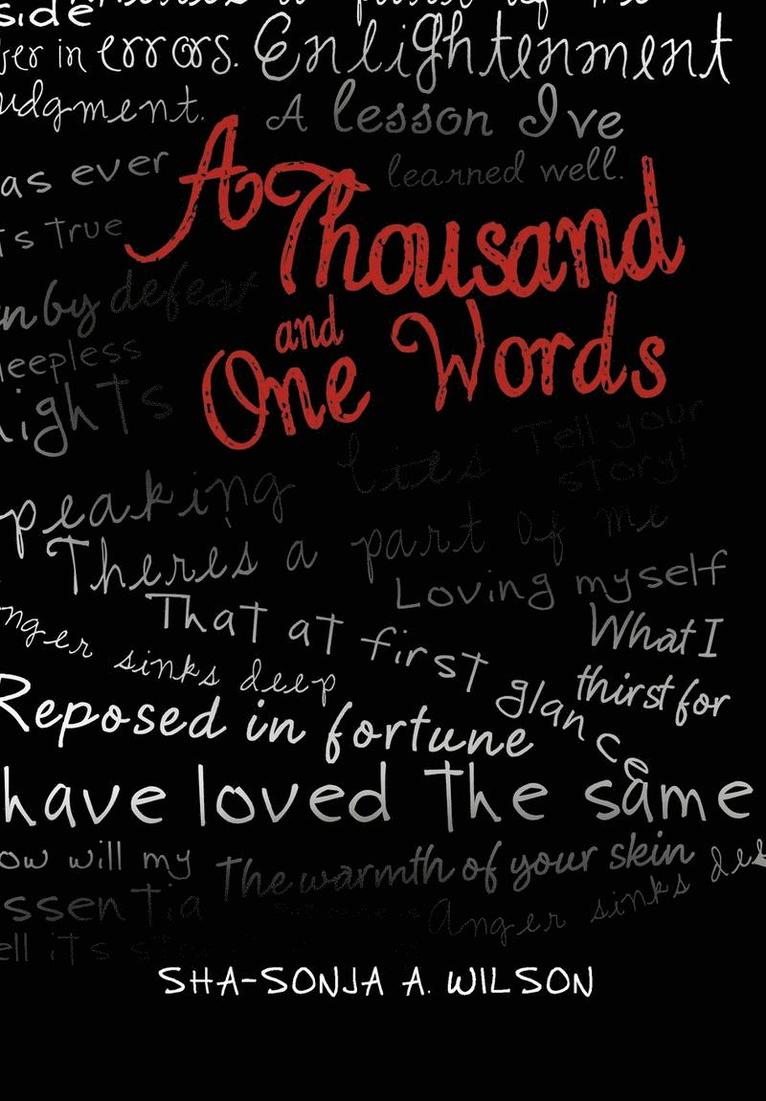 side
er in errors. Enlightenment
udgment. A lesson Ive
as ever learned well.
A
Thousand
ts true
n by defeat
and
One Words
leepless
ights
Tell your
story!
peaking lies
Theres a part of me
Loving myself
That at first glance
What I
thirst for
nger sinks deep
Reposed in fortune
have loved the same
ow will my The warmth of your skin
ssentia anger sinks dee
ell its
SHA-SONJA A. WILSON